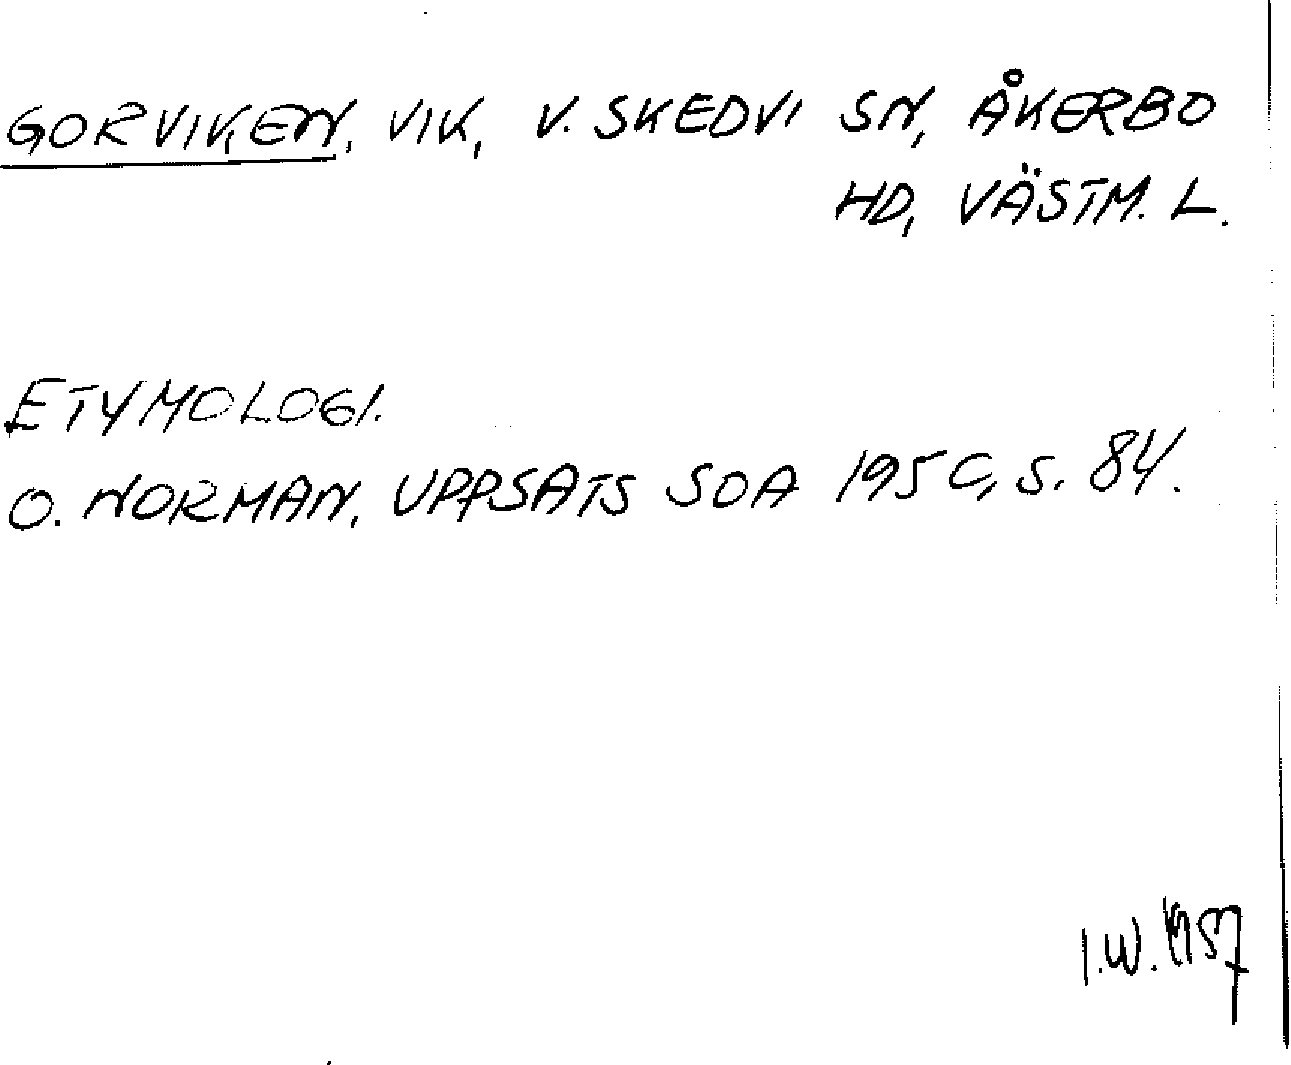 GORVIKEN, VIK, V. SKEDVI SN, ÅKERBO
HD, VÄSTM. L.
ETYMOLOGI.
O. NORMAN, UPPSATS SOA 1950, S. 84.
I.W. 1957